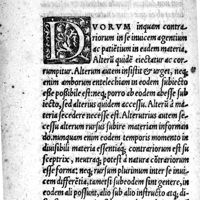 DVORVM inquam contra-
riorum in se inuicem agentium
ac patiētium in eadem materia,
Alterū quidē eiectatur ac cor-
rumpitur. Alterum autem insistit & vrget, neq;
enim amborum entelechiam in eodem subiecto
esse possibile est: neq; porro ab eodem abesse sub
iecto, sed alterius quidem accessu. Alterū dī mate
ria secedere necesse est. Alterutrius autem se-
cessu alterum rursus subire materiam informādo
, nunquam enim eodem temporis momento in
diuisibili materia essentiaq; contrariorum est su
sceptrix, neutraq; potest a natura cōtrariorum
esse formæ; neq; rursus plurimum inter se inui-
cem differētia, tametsi subeodem sint genere, in
eodem ali possunt, alio sub alio instructo atq; de-